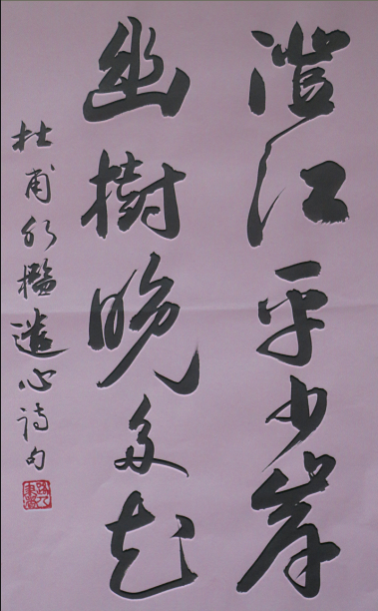 澄江平少岸
幽樹晚多花
杜甫水檻遣心詩句